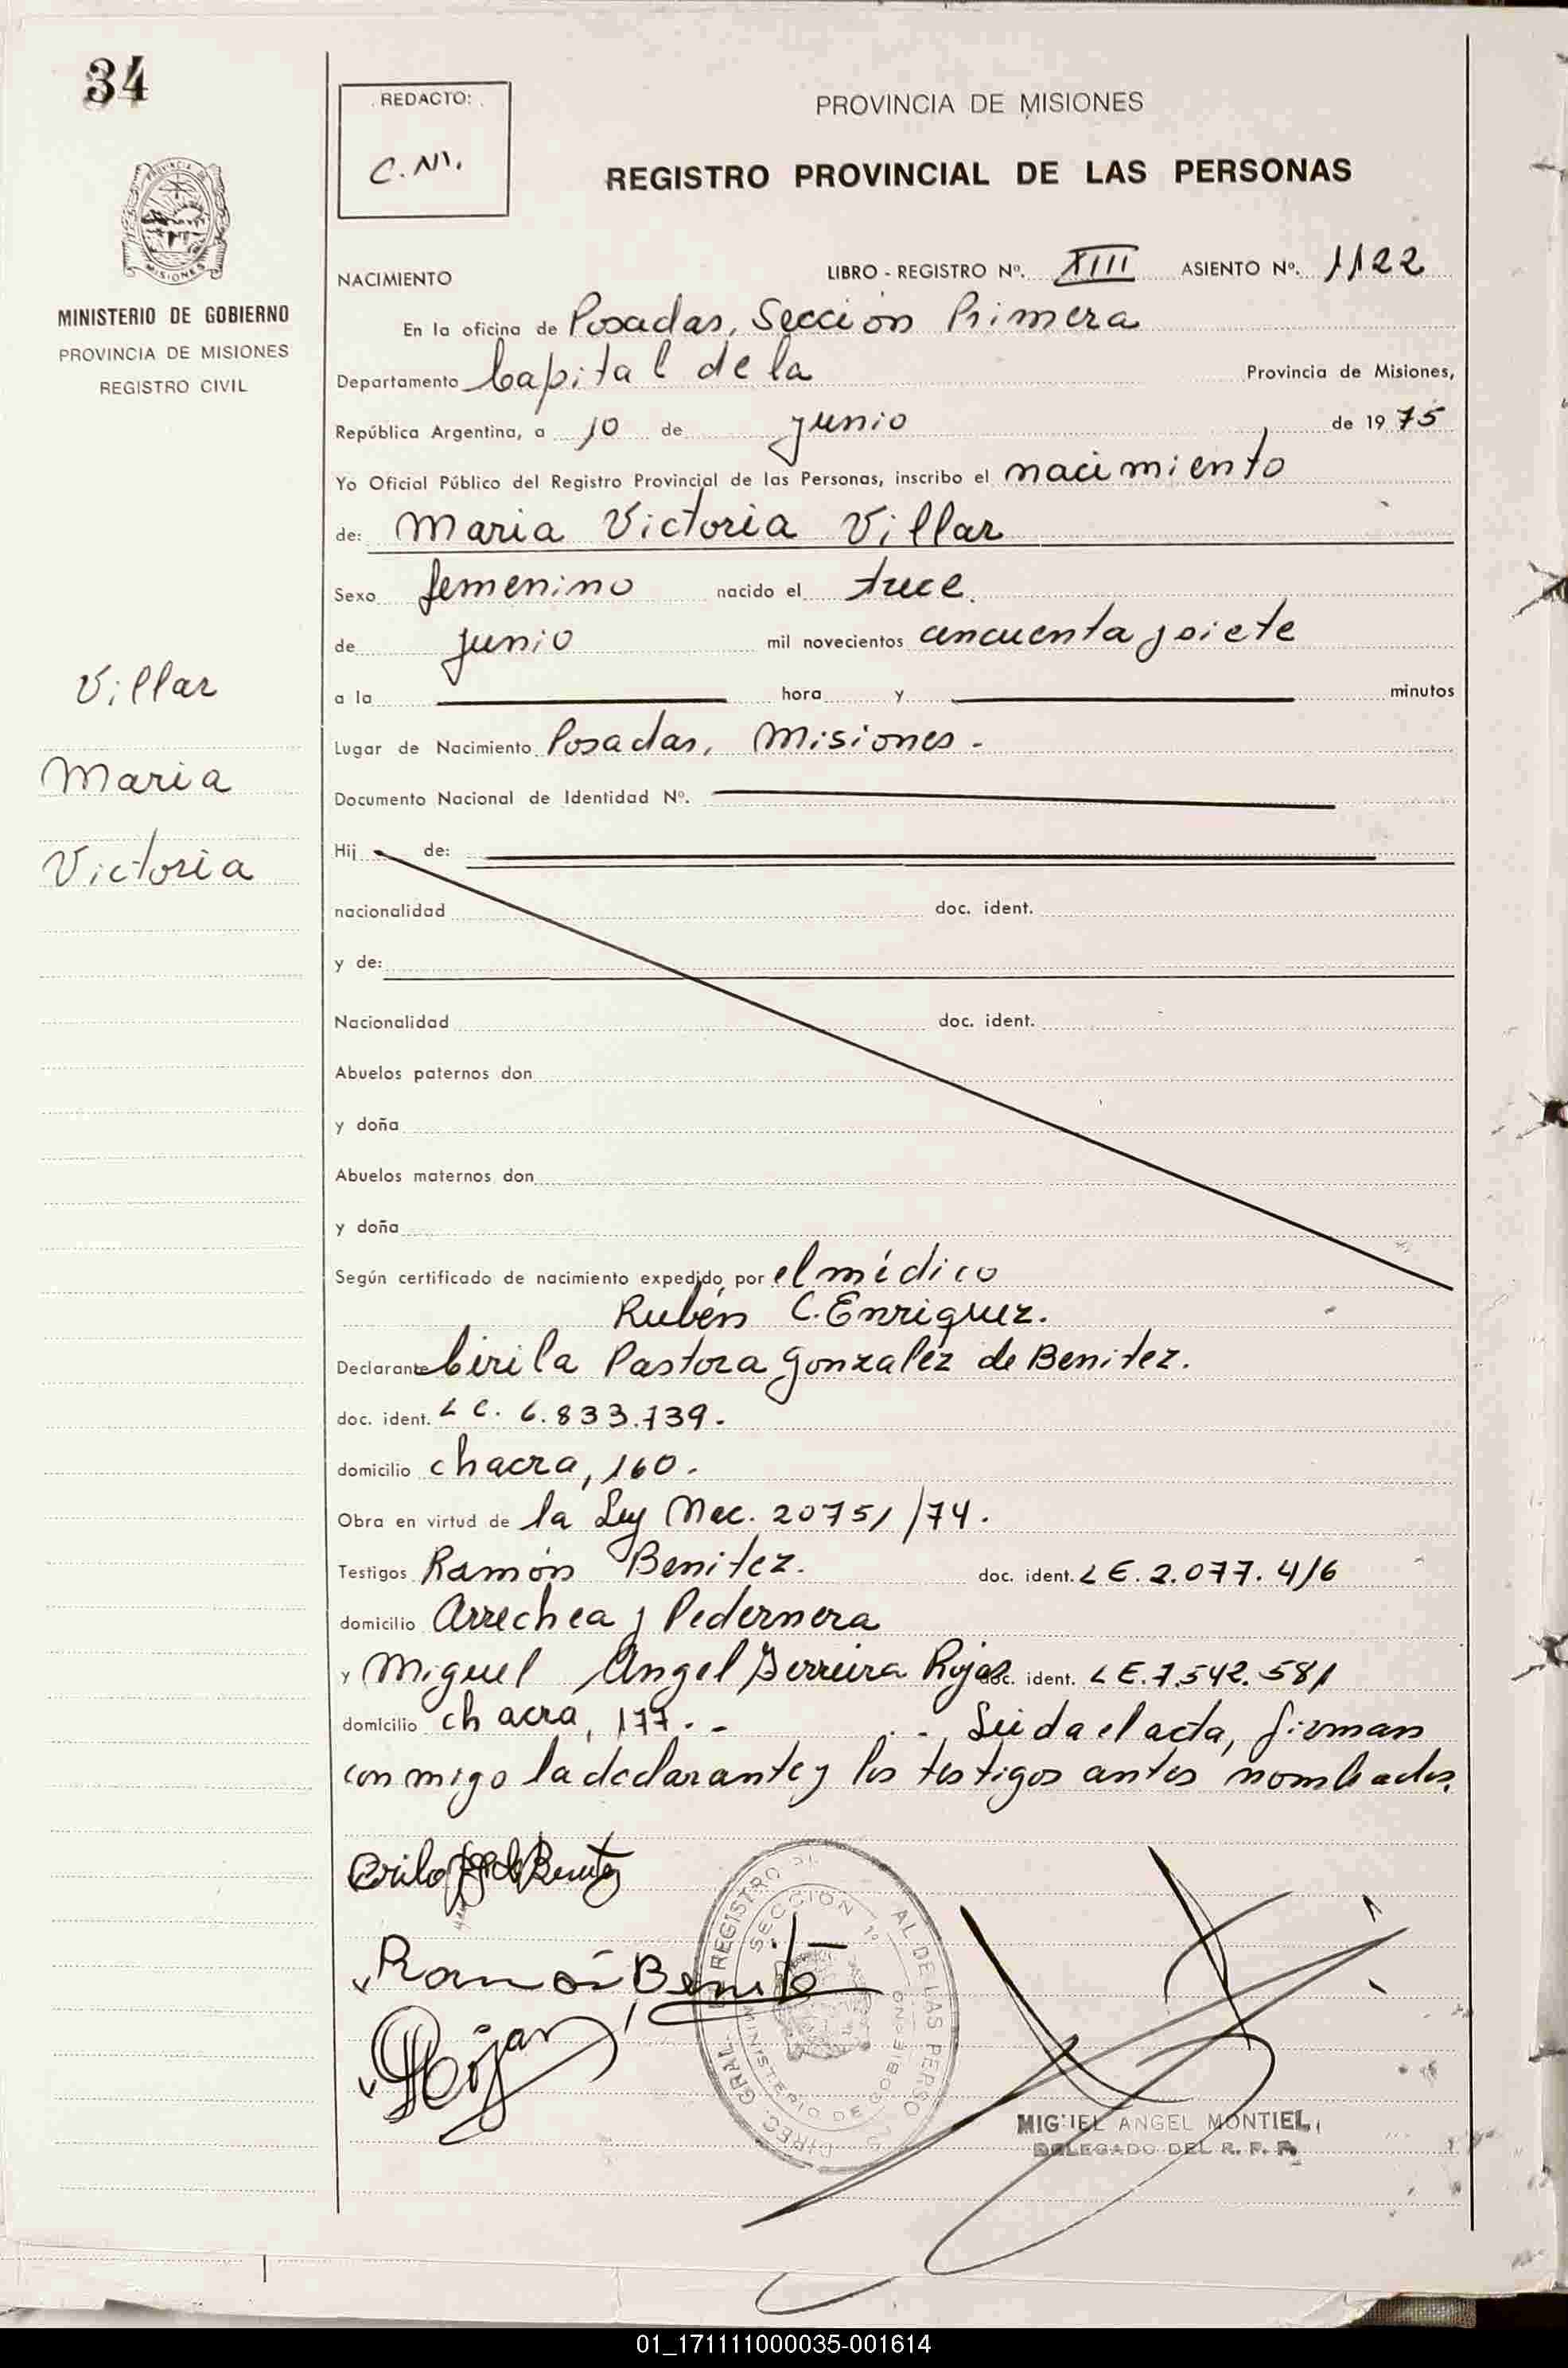 34
REDACTO:
C.M.
PROVINCIA DE MISIONES
REGISTRO PROVINCIAL DE LAS PERSONAS
MISIONES
MINISTERIO DE GOBIERNO
PROVINCIA DE MISIONES
REGISTRO CIVIL
NACIMIENTO LIBRO - REGISTRO Nº. XIII ASIENTO Nº. 1122
En la oficina de Posadas, Sección Primera
Departamento Capital de la Provincia de Misiones,
República Argentina, a 10 de junio de 1975
Yo Oficial Público del Registro Provincial de las Personas, inscribo el nacimiento
de: Maria Victoria Villar
Sexo femenino nacido el trece
de junio mil novecientos cincuenta y siete
a la hora y minutos
Lugar de Nacimiento Posadas, Misiones.-
Documento Nacional de Identidad Nº.
Hij de:
nacionalidad doc. ident.
y de:
Nacionalidad doc. ident.
Abuelos paternos don
y doña
Abuelos maternos don
y doña
Villar
Maria
Victoria
Según certificado de nacimiento expedido por el médico
Rubén C. Enriquez.
Declarante Cirila Pastora Gonzalez de Benitez.
doc. ident. L C. 6.833.739.
domicilio chacra, 160.
Obra en virtud de la Ley Nac. 20751/74.
Testigos Ramón Benitez. doc. ident. L E. 2.077.416
domicilio Arrechea y Pedernera
y Miguel Angel Ferreira Rojas doc. ident. L E. 7.542.581
domicilio chacra, 177.- Leida el acta, firman
conmigo la declarante y los testigos antes nombrados.
Ramón Benite
Rojas
DIREC. GRAL. REGISTRO AL DE LAS PERSO
SECCION 1º
MINISTERIO DE GOBIERNO
MIGUEL ANGEL MONTIEL
DELEGADO DEL R. P. P.
01_171111000035-001614